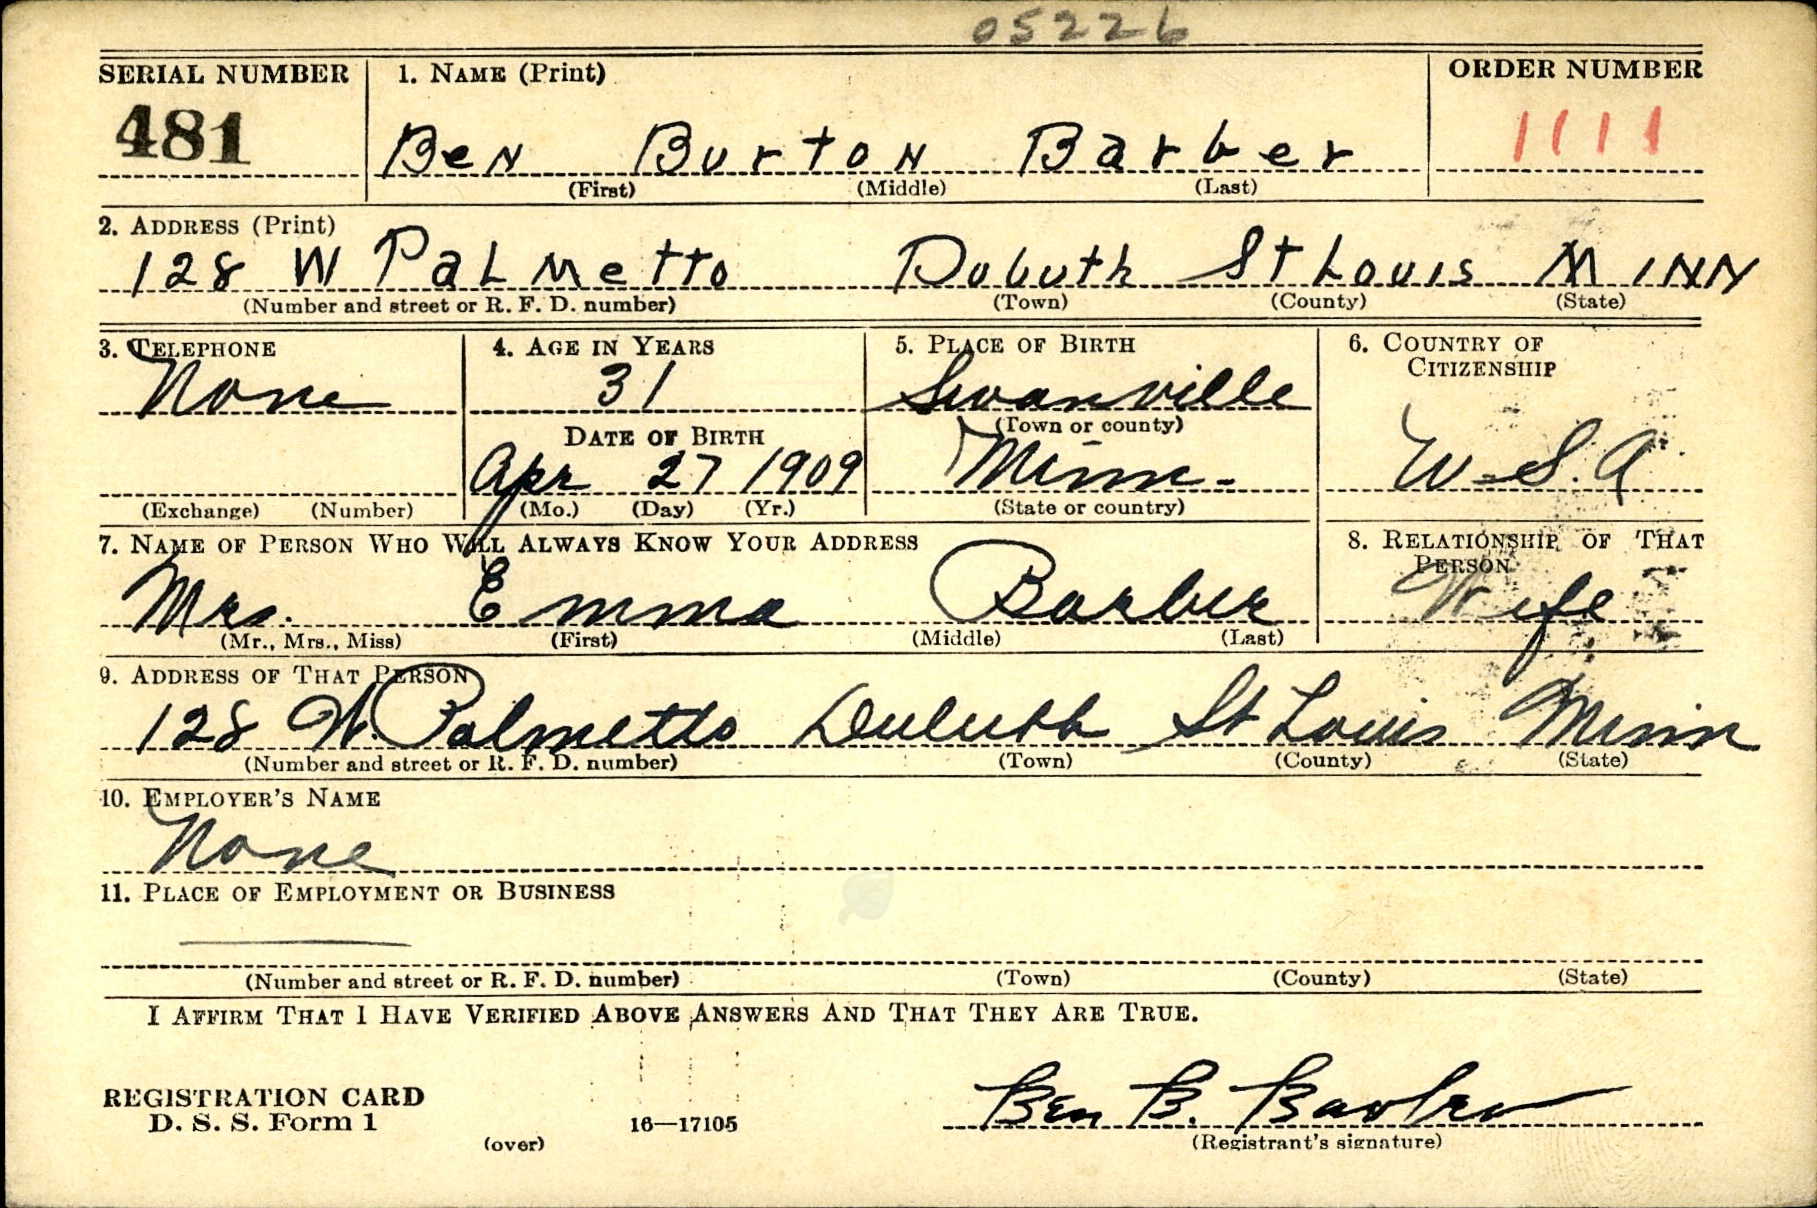 05226
SERIAL NUMBER 1. NAME (Print) ORDER NUMBER
481 Ben Burton Barber 1111
(First) (Middle) (Last)
2. ADDRESS (Print)
128 W Palmetto Duluth St Louis MINN
(Number and street or R. F. D. number) (Town) (County) (State)
3. TELEPHONE 4. AGE IN YEARS 5. PLACE OF BIRTH 6. COUNTRY OF
CITIZENSHIP
None 31 Swanville
DATE OF BIRTH (Town or county)
Apr 27 1909 Minn. U.S.A
(Exchange) (Number) (Mo.) (Day) (Yr.) (State or country)
7. NAME OF PERSON WHO WILL ALWAYS KNOW YOUR ADDRESS 8. RELATIONSHIP OF THAT
PERSON
Mrs. Emma Barber Wife
(Mr., Mrs., Miss) (First) (Middle) (Last)
9. ADDRESS OF THAT PERSON
128 W. Palmetto Duluth St Louis Minn
(Number and street or R. F. D. number) (Town) (County) (State)
10. EMPLOYER'S NAME
None
11. PLACE OF EMPLOYMENT OR BUSINESS
(Number and street or R. F. D. number) (Town) (County) (State)
I AFFIRM THAT I HAVE VERIFIED ABOVE ANSWERS AND THAT THEY ARE TRUE.
REGISTRATION CARD
D. S. S. Form 1 16—17105 Ben B. Barber
(over) (Registrant's signature)